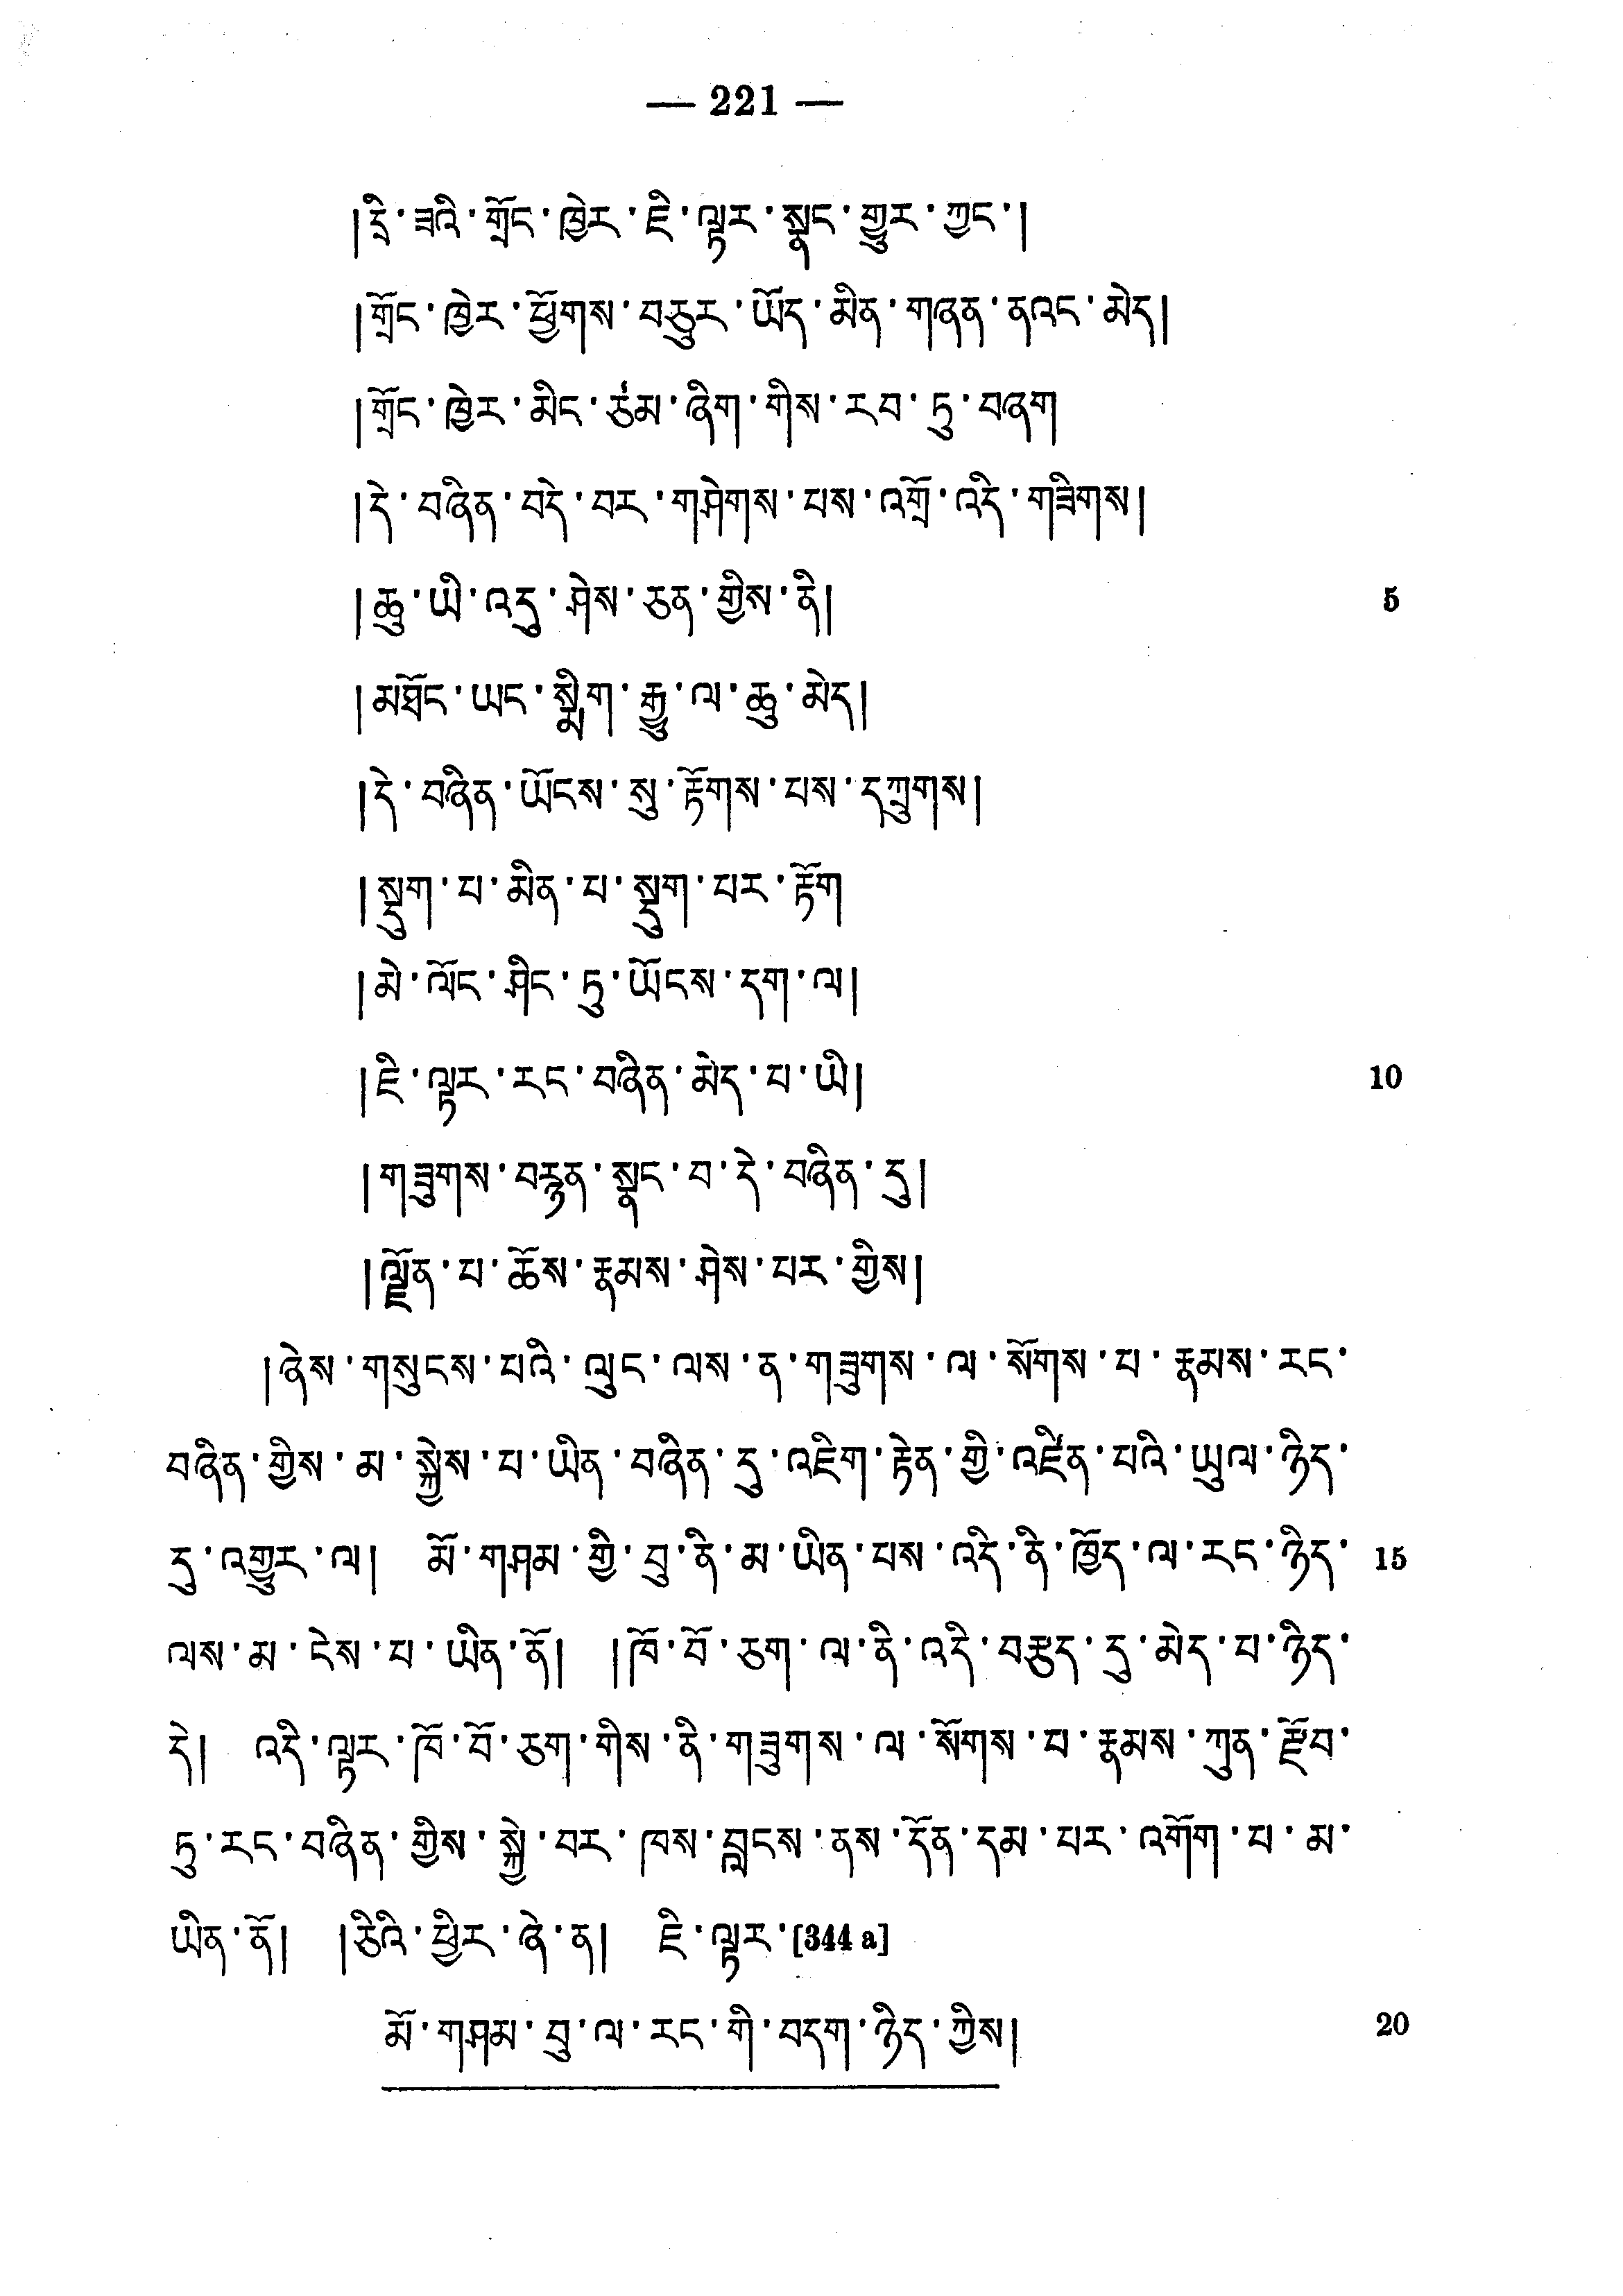 — 221 —
།དྲི་ཟའི་གྲོང་ཁྱེར་ཇི་ལྟར་སྣང་གྱུར་ཀྱང་།
།གྲོང་ཁྱེར་ཕྱོགས་བཅུར་ཡོད་མིན་གཞན་ནའང་མེད།
།གྲོང་ཁྱེར་མིང་ཙམ་ཞིག་གིས་རབ་ཏུ་བཞག
།དེ་བཞིན་བདེ་བར་གཤེགས་པས་འགྲོ་འདི་གཟིགས།
།ཆུ་ཡི་འདུ་ཤེས་ཅན་གྱིས་ནི། 5
།མཐོང་ཡང་སྨིག་རྒྱུ་ལ་ཆུ་མེད།
།དེ་བཞིན་ཡོངས་སུ་རྟོགས་པས་དཀྲུགས།
།སྡུག་པ་མིན་པ་སྡུག་པར་རྟོག
།མེ་ལོང་ཤིང་ཏུ་ཡོངས་དག་ལ།
།ཇི་ལྟར་རང་བཞིན་མེད་པ་ཡི། 10
།གཟུགས་བརྙན་སྣང་བ་དེ་བཞིན་དུ།
།ལྗོན་པ་ཆོས་རྣམས་ཤེས་པར་གྱིས།
།ཞེས་གསུངས་པའི་ལུང་ལས་ན་གཟུགས་ལ་སོགས་པ་རྣམས་རང་
བཞིན་གྱིས་མ་སྐྱེས་པ་ཡིན་བཞིན་དུ་འཇིག་རྟེན་གྱི་འཛིན་པའི་ཡུལ་ཉིད་
དུ་འགྱུར་ལ། མོ་གཤམ་གྱི་བུ་ནི་མ་ཡིན་པས་འདི་ནི་ཁྱོད་ལ་རང་ཉིད་ 15
ལས་མ་ངེས་པ་ཡིན་ནོ། །ཁོ་བོ་ཅག་ལ་ནི་འདི་བརྩད་དུ་མེད་པ་ཉིད་
དེ། འདི་ལྟར་ཁོ་བོ་ཅག་གིས་ནི་གཟུགས་ལ་སོགས་པ་རྣམས་ཀུན་རྫོབ་
ཏུ་རང་བཞིན་གྱིས་སྐྱེ་བར་ཁས་བླངས་ནས་དོན་དམ་པར་འགོག་པ་མ་
ཡིན་ནོ། །ཅིའི་ཕྱིར་ཞེ་ན། ཇི་ལྟར་[344 a]
མོ་གཤམ་བུ་ལ་རང་གི་བདག་ཉིད་ཀྱིས། 20